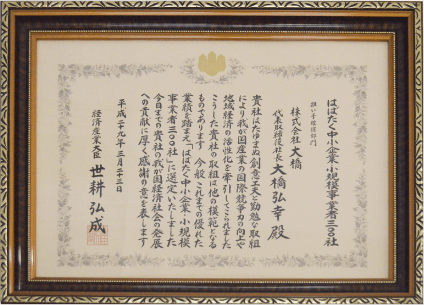 はばたく中小企業・小規模事業者三〇〇社
担い手確保部門
株式会社大橋
代表取締役社長 大橋弘幸 殿
貴社はたゆまぬ創意工夫と勤勉な取組
により我が国産業の国際競争力の向上や
地域経済の活性化を牽引してこられました
こうした貴社の取組は他の模範となる
ものであります 今般これまでの優れた
業績を踏まえ「はばたく中小企業・小規模
事業者三〇〇社」に選定いたしました
今日までの貴社の我が国経済社会の発展
への貢献に厚く感謝の意を表します
平成二十九年三月二十三日
経済産業大臣 世耕弘成